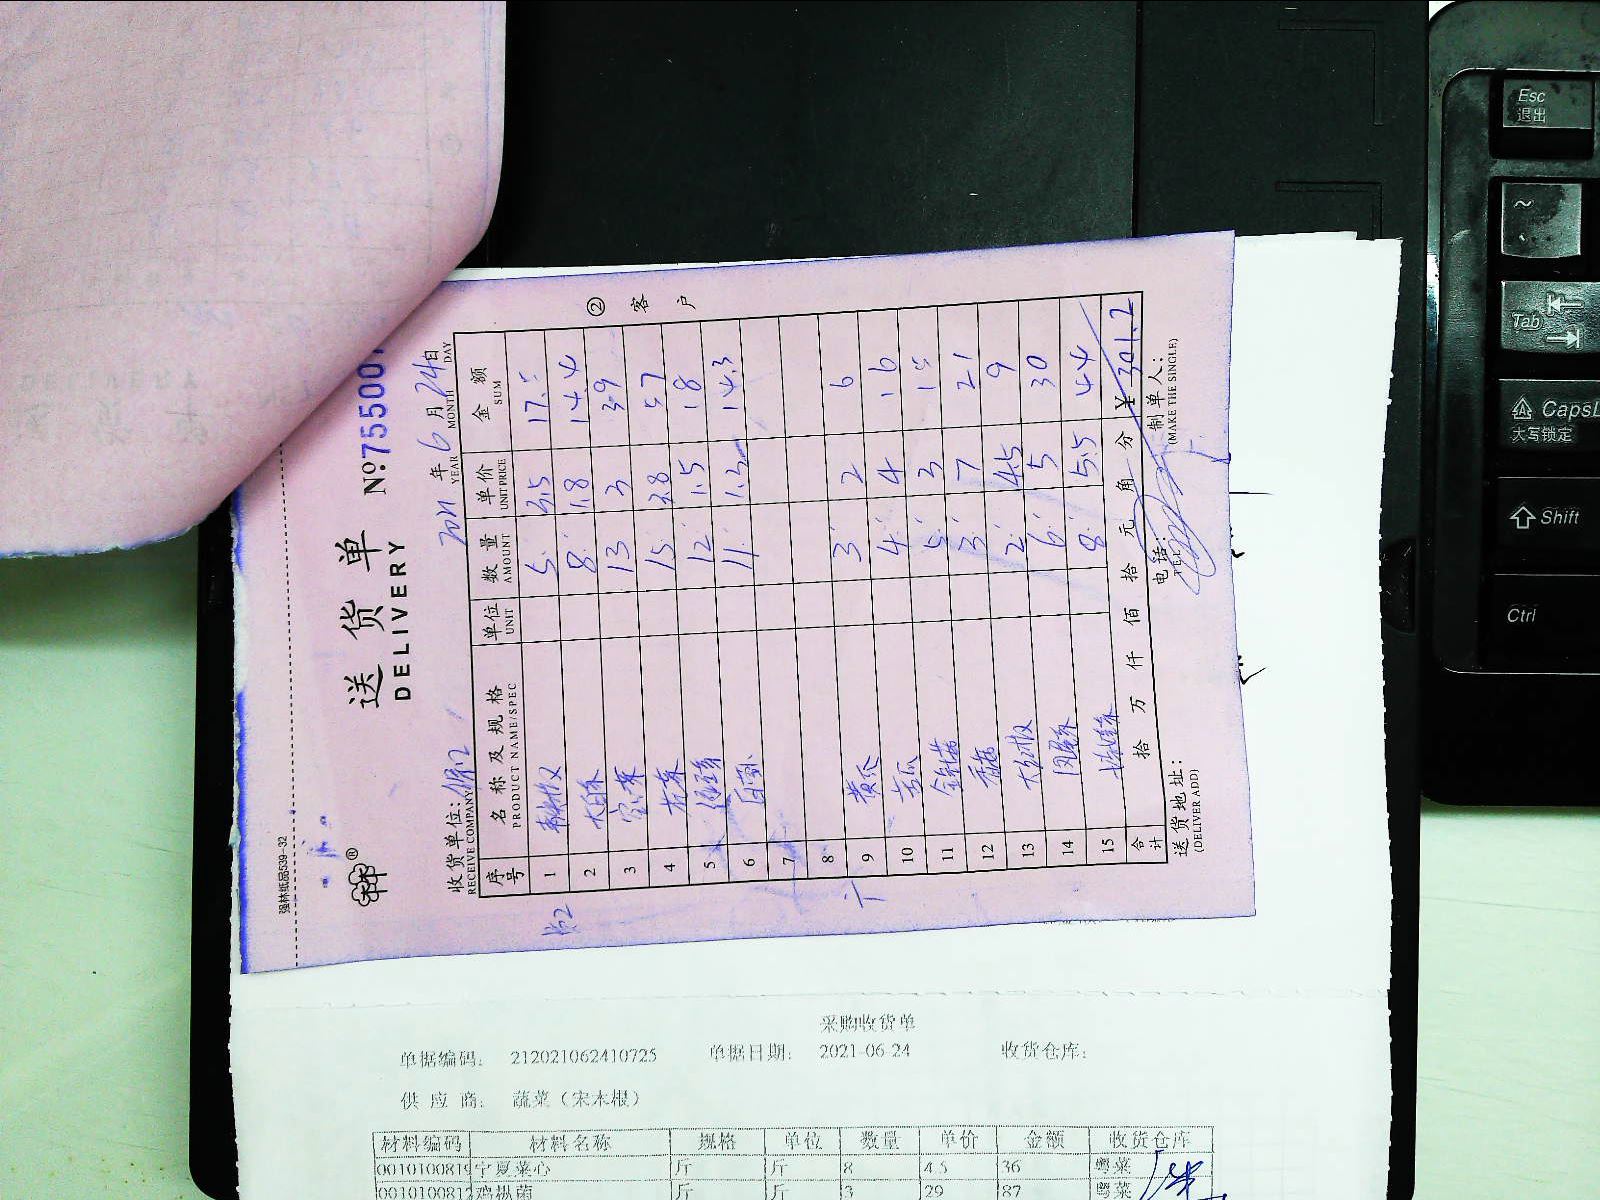 强林纸品539-32
送货单
DELIVERY
№755001
2021年6月24日
YEAR MONTH DAY
收货单位:
RECEIVE COMPANY
②客户
序号 名称及规格 单位 数量 单价 金额
PRODUCT NAME/SPEC UNIT AMOUNT UNIT PRICE SUM
1 5 3.5 17.5
2 大白菜 8 1.8 14.4
3 13 3 39
4 15 3.8 57
5 12 1.5 18
6 11 1.3 14.3
7
8
9 黄瓜 3 2 6
10 苦瓜 4 4 16
11 5 3 15
12 3 7 21
13 2 4.5 9
14 6 5 30
15 8 5.5 44
合计 拾 万 仟 佰 拾 元 角 分 ¥ 301.2
送货地址: 电话: 制单人:
(DELIVER ADD) TEL (MAKE THE SINGLE)
采购收货单
单据编码: 212021062410725 单据日期: 2021-06-24 收货仓库:
供应商: 蔬菜(宋木根)
材料编码 材料名称 规格 单位 数量 单价 金额 收货仓库
0010100819 宁夏菜心 斤 斤 8 4.5 36 粤菜
0010100812 鸡枞菌 斤 斤 3 29 87 粤菜
Esc
退出
~
Tab
CapsL
大写锁定
Shift
Ctrl